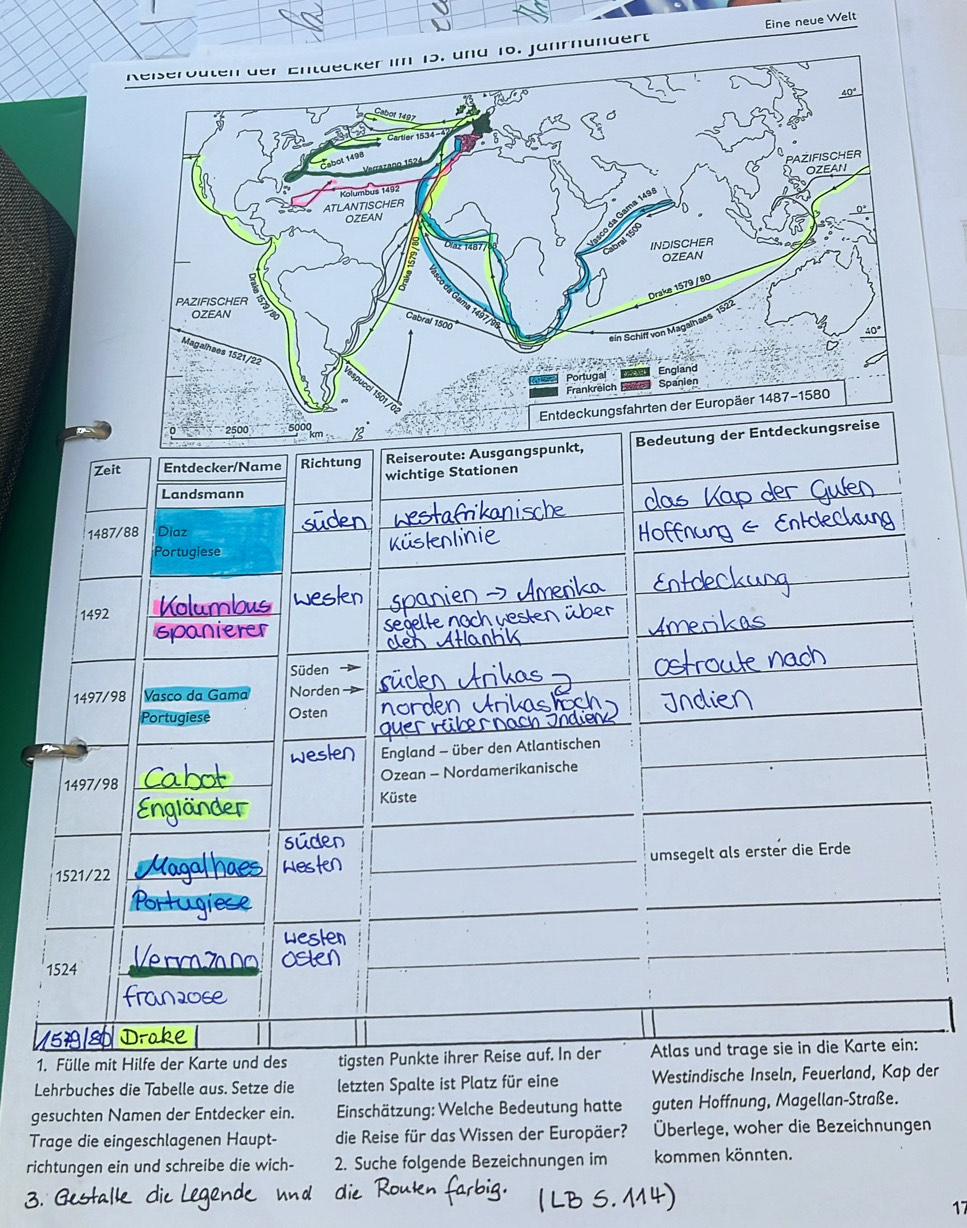 Eine neue Welt
Reiserouten der Entdecker im 15. und 16. Jahrhundert
40°
Cabot 1497
Cartier 1534-4
Cabot 1498
Verrazano 1524
Kolumbus 1492
ATLANTISCHER
OZEAN
PAZIFISCHER
OZEAN
0°
Vasco da Gama 1498
Cabral 1500
INDISCHER
OZEAN
Diaz 1487/88
Drake 1579/80
Vasco da Gama 1497/98
Drake 1579/80
Drake 1579/80
PAZIFISCHER
OZEAN
Cabral 1500
ein Schiff von Magalhaes 1522
40°
Magalhaes 1521/22
Vespucci 1501/02
Portugal
England
Frankreich
Spanien
0 2500 5000
km
Entdeckungsfahrten der Europäer 1487–1580
Zeit
Entdecker/Name
Landsmann
Richtung
Reiseroute: Ausgangspunkt,
wichtige Stationen
Bedeutung der Entdeckungsreise
1487/88
Diaz
Portugiese
süden
westafrikanische
Küstenlinie
das Kap der Guten
Hoffnung ← Entdeckung
1492
Kolumbus
spanierer
westen
spanien → Amerika
segelte nach westen über
den Atlantik
Entdeckung
Amerikas
1497/98
Vasco da Gama
Portugiese
Süden →
Norden →
Osten
süden Arikas
norden Arikas hoch
quer rüber nach Indien
ostroute nach
Indien
1497/98
Cabot
Engländer
westen
England – über den Atlantischen
Ozean – Nordamerikanische
Küste
1521/22
Magalhaes
Portugiese
süden
westen
umsegelt als erster die Erde
1524
Verrazano
franzose
westen
osten
1579/80 Drake
1. Fülle mit Hilfe der Karte und des
Lehrbuches die Tabelle aus. Setze die
gesuchten Namen der Entdecker ein.
Trage die eingeschlagenen Haupt-
richtungen ein und schreibe die wich-
tigsten Punkte ihrer Reise auf. In der
letzten Spalte ist Platz für eine
Einschätzung: Welche Bedeutung hatte
die Reise für das Wissen der Europäer?
2. Suche folgende Bezeichnungen im
Atlas und trage sie in die Karte ein:
Westindische Inseln, Feuerland, Kap der
guten Hoffnung, Magellan-Straße.
Überlege, woher die Bezeichnungen
kommen könnten.
3. Gestalte die Legende und die Routen farbig. (LB S. 114)
17